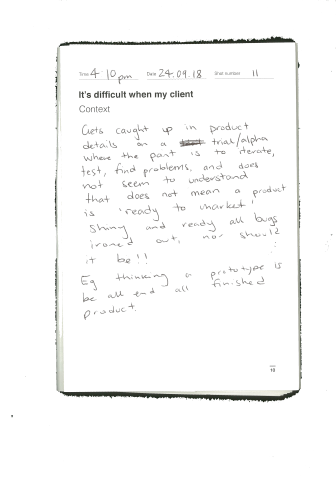 Time 4 10pm Date 24.09.18 Shot number 11
It's difficult when my client
Context
Gets caught up in product
details on a trial/alpha
where the point is to iterate,
test, find problems, and does
not seem to understand
that does not mean a product
is 'ready to market'
Shiny and ready all bugs
ironed out, nor should
it be!!
Eg thinking a prototype is
be all end all finished
product.